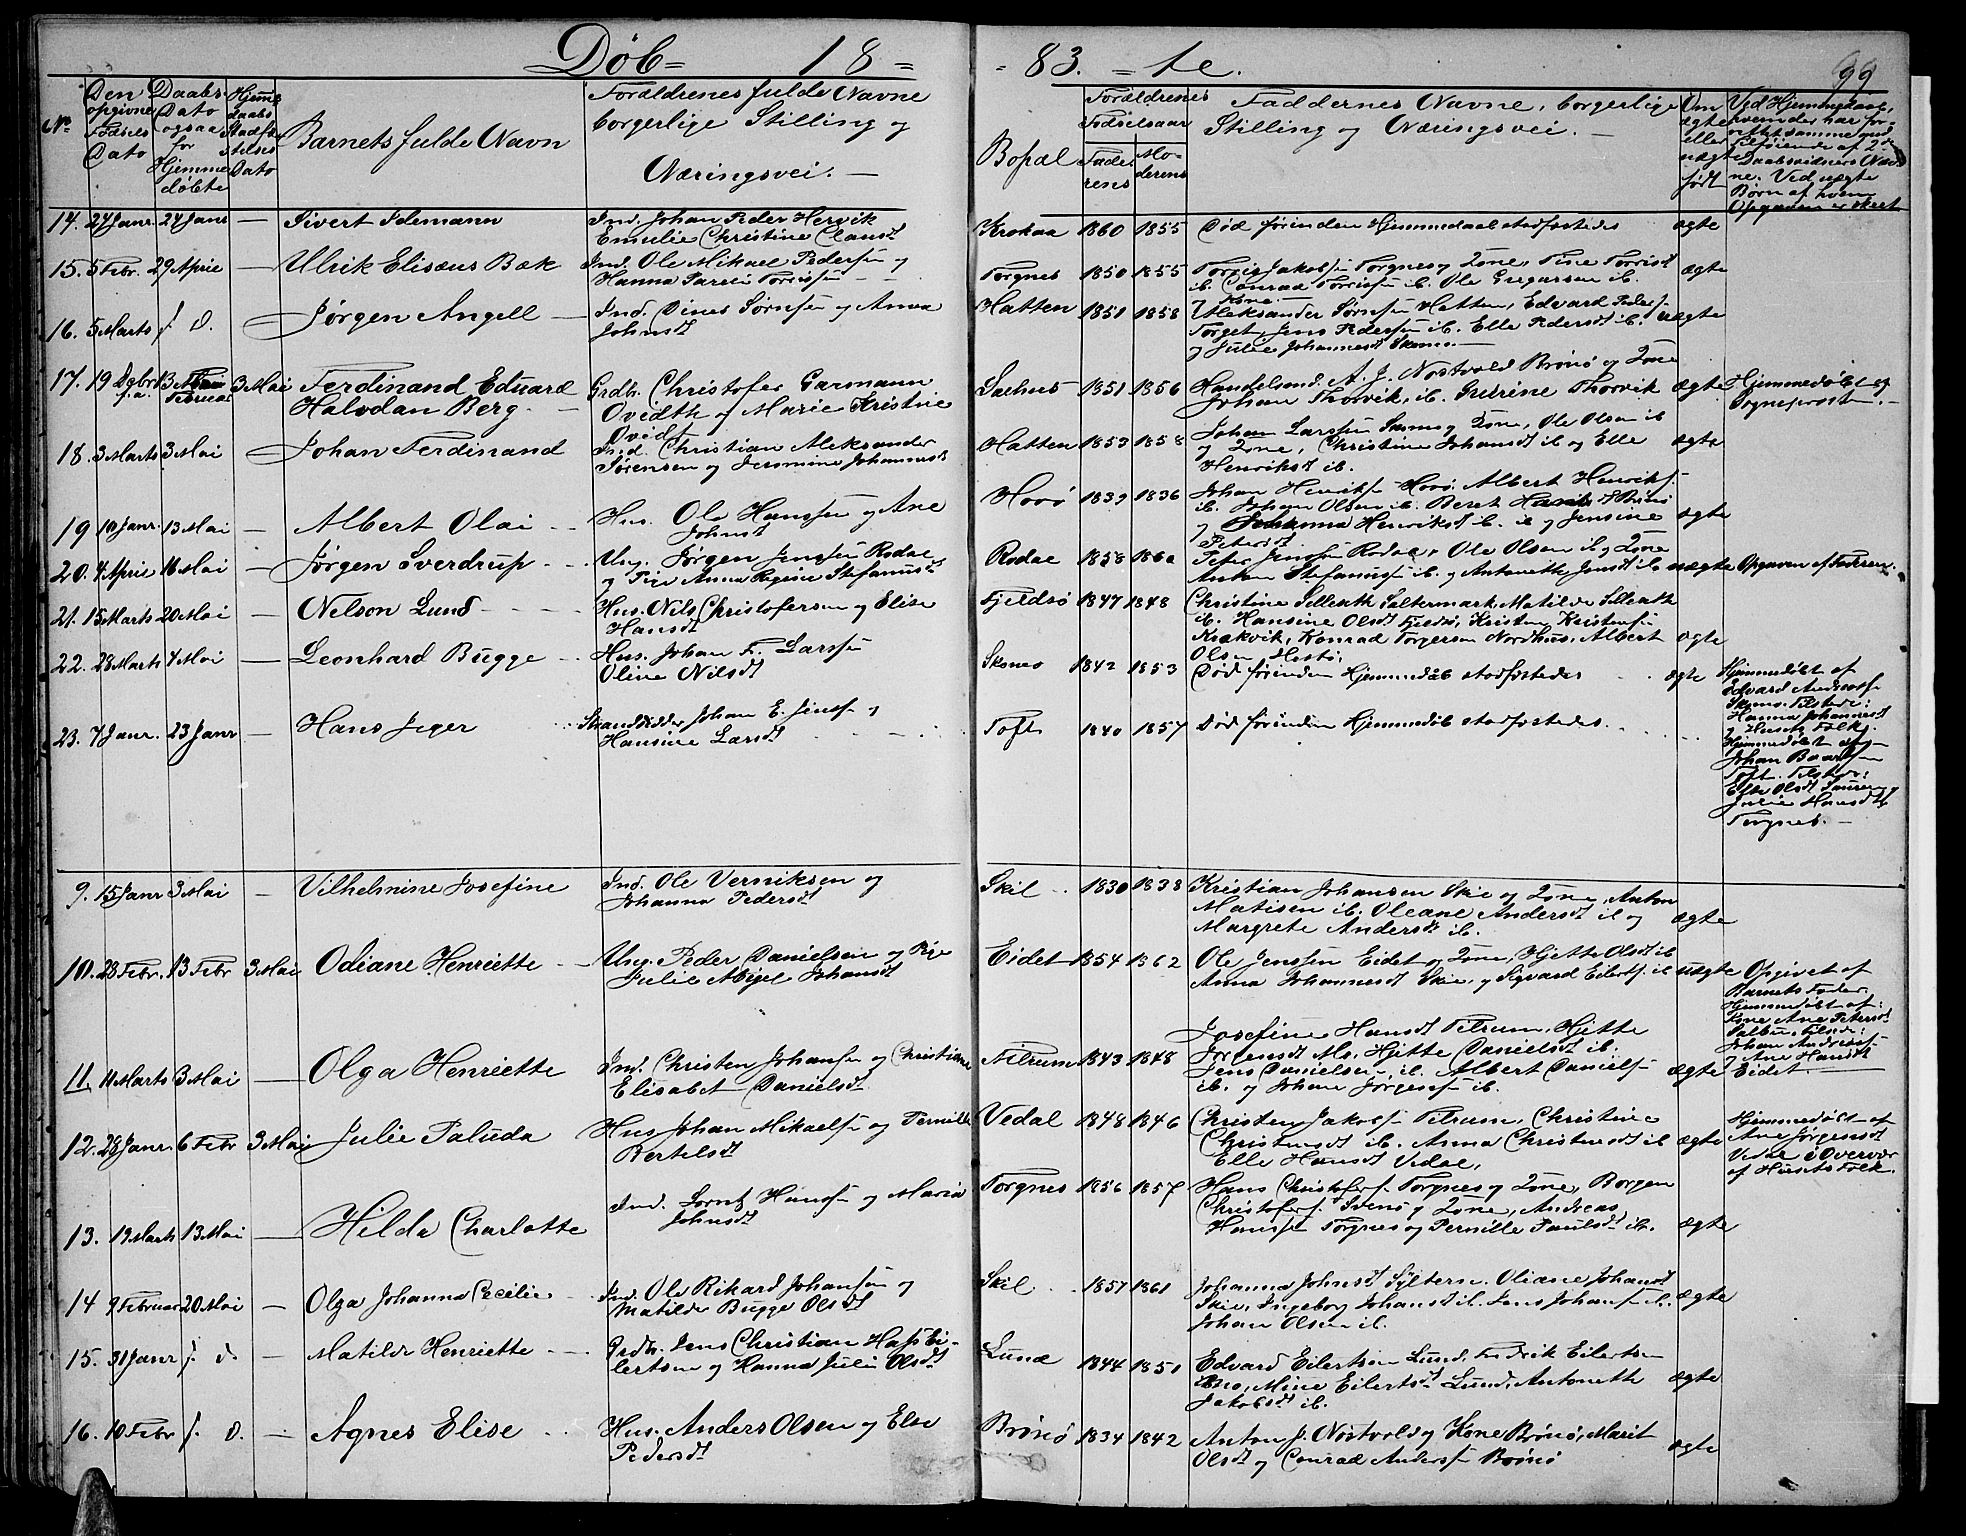 Døb= 18= =83. =te. 99
No Den opgivne Fødsels Dato
Daabs Dato ogsaa for Hjemme døbte
Hjemme daabs Stadfæstelses Dato
Barnets fulde Navn
Forældrenes fulde Navne
borgerlige Stilling og
Næringsvei. —
Bopæl
Forældrenes Fødselsaar
Faderens Moderens
Faddernes Navne, borgerlige
Stilling og Næringsvei. —
Om ægte eller uægte født
Ved Hjemmedaab, hvem der har forrettet samme med Tilføiende af 2de Daabsvidners Navne. Ved uægte Børn af hvem Opgaven er skeet
14. 24 Janr. 24 Janr — Sivert Telemann
Ind. Johan Peder Hervik
Emulie Christine Clausdt
Krokaa 1860 1855 Død førinden Hjemmedaab stadfæstedes ægte
15. 5 Febr. 29 April — Ulrik Elisæus Bæk
Ind. Ole Mikael Pedersen og
Hanna Torrisen
Torgnes 1850 1855 Torris Jakobsen Torgnes og Kone, Tine Torrisdt
ib. Conrad Torrisen ib. Ole Gregersen ib. ægte
16. 5 Marts f. d. Jørgen Angell —
Ind. Dines Sørnsen og Anna
Johnsdt
Hatten 1851 1858 Aleksander Sørnsen Hatten, Edvard
Torget, Jens Pedersen ib. Elle Pedersdt ib.
og Julie Johannesdt Skomo. — ægte
17. 19 Dcbr f.a. 13 Februar 3 Mai Ferdinand Eduard
Halvdan Berg. —
Grdb. Christofer Garmann
Qvidth og Marie Kristine
Qvidt
Sæhus 1851 1856 Handelsmd. A. J. Nostvold Brønø og Kone
Johan Thorvik, ib. Gurine Thorvik ægte Hjemmedøbt af
Sogneprosten. —
18. 3 Marts 3 Mai Johan Ferdinand
Ind. Christian Aleksander
Sørensen og Jeromine Johannesdt
Hatten 1853 1858 Johan Larssen Skomo og Kone, Ole Olsen ib
og Kone, Christine Johansdt ib og Elle
Henriksdt ib. ægte
19 10 Janr. 13 Mai — Albert Olai —
Hus. Ole Hanssen og Ane
Johnsdt
Horø 1839 1836 Johan Henriksen Horø. Albert Henriksen
ib. Johan Olsen ib. Beret Brønø
og Johanna Henriksdt ib. og Jensine
Petersdt ægte
20. 4 April 16 Mai — Jørgen Sverdrup —
Ung. Jørgen Jenssen Rodal
og Pige Anna Regine Stefanusdt
Rodal 1858 1860 Peter Jenssen Rodal, Ole Olsen ib og Kone
Anton Stefanussen ib. og Antonette Jensdt ib. uægte Opgaven af Faderen.
21. 15 Marts 20 Mai — Nelson Lund —
Hus. Nils Christofersen og Elise
Hansdt
Fjeldsø 1847 1848 Christine Selleath Saltermark, Matilde Selleath
ib. Hansine Olsdt Fjeldsø, Kristen Kristensen
Krækvik, Konrad Torgersen Nordhus, Albert
Olsen Hestø, ægte
22. 28 Marts 4 Mai — Leonhard Bugge —
Hus. Johan F. Larssen
Oline Nilsdt
Skomo 1842 1853 Død førinden Hjemmedøb stadfæstedes ægte
Hjemmedøbt af
Edvard Andreassen
Skomo. Tilstede:
Hanna Johannesdt
og Husets Folk.
23. 7 Janr. 23 Janr — Hans Jeger
Strandsidder Johan E. Jenssen og
Hansine Larsdt
Toft 1840 1857 Død førinden Hjemmedøb stadfæstedes.
Hjemmedøbt af
Johan
Toft. Tilstede:
Else Olsdt og
Julie Hansdt
Torgnes. —
9. 15 Janr 3 Mai — Vilhelmine Josefine
Ind. Ole Verniksen og
Johanna Pedersdt
Skil 1830 1838 Kristian Johansen Skil og Kone, Anton
Matisen ib. Oleane Andersdt ib og
Margrete Andersdt ib. ægte
10. 28 Febr. 13 Febr 3 Mai Odiane Henriette —
Ung. Peder Danielsen og Pige
Julie Abigel Johansdt
Eidet 1854 1862 Ole Jenssen Eidet og Kone, Hjette Olsdt ib
Anna Johannesdt Skil, og Sigvard Eilertsen ib uægte
Opgivet af
Barnets Fader,
Hjemmedøbt af:
Kone Ane Petersdt
Tilstede:
Johan Andreassen
og Ane Hansdt
Eidet. —
11. 11 Marts 3 Mai — Olga Henriette
Ind. Christen Johansen og Christiane
Elisabet Danielsdt
Tilrum 1843 1848 Josefine Hansdt Tilrum, Hjette
Jørgensdt Mo, Hjette Danielsdt ib.
Jens Danielsen ib. Albert Danielsen
ib. og Johan Jørgensen ib. ægte
12. 28 Janr. 6 Febr 3 Mai Julie Paluda
Hus Johan Mikaelsen og Pernille
Bertelsdt
Vedal 1848 1846 Christen Jakobsen Tilrum, Christine
Christensdt ib. Anna Christensdt ib
Elle Hansdt Vedal, ægte
Hjemmedøbt af
Ane Jørgensdt
Vedal i Overvær
af Husets Folk.
13. 19 Marts 13 Mai — Hilda Charlotte
Ind. Lorntz Hanssen og Maria
Johnsdt
Torgnes 1856 1857 Hans Christofersen Torgnes og Kone, Borgen
Christofersen og Kone, Andreas
Hanssen Torgnes og Pernille Paulsdt ib. ægte
14 9 Februar 20 Mai — Olga Johanna Cecilie —
Ind. Ole Rikard Johansen og
Matilde Bugge Olsdt
Skil. 1857 1861 Johanna Johnsdt Sylteren. Oliane Johansdt
Skil, Ingeborg Johansdt ib. Jens Johansen ib.
Johan Olsen ib. ægte
15. 31 Janr f. d. — Matilde Henriette —
Grdbr. Jens Christian Hass Ei-
lertsen og Hanna Julie Olsdt
Lund 1844 1851 Edvard Eilertsen Lund, Fredrik Eilertsen
Mine Eilertsdt Lund, Antonette
Jakobsdt ib. ægte
16. 10 Febr f. d. — Agnes Elise —
Hus. Anders Olsen og Else
Pedersdt
Brønø 1834 1842 Anton J. Nostvold og Kone Brønø, Marit
Olsdt og Conrad Andersen Brønø ægte